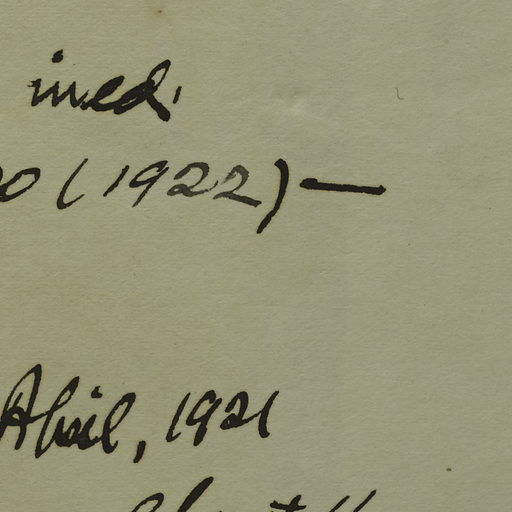 ined.
20 (1922) —
Abril, 1921